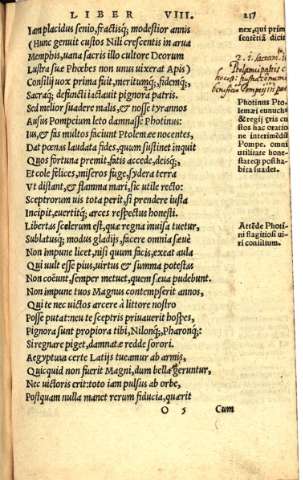 LIBER VIII. 217
Iam placidus senio, fractisq; modestior annis
(Hunc genuit custos Nili crescentis in arua
Memphis, uana sacris illo cultore Deorum
Lustra suæ Phœbes non unus uixerat Apis)
Consilij uox prima fuit, meritumq;, fidemq;,
Sacraq; defuncti iactauit pignora patris.
Sed melior suadere malis, & nosse tyrannos
Ausus Pompeium leto damnasse Photinus:
Ius, & fas multos faciunt Ptolemæe nocentes,
Dat pœnas laudata fides, quum sustinet inquit
Quos fortuna premit, fatis accede, deisq;,
Et cole felices, miseros fuge, sydera terra
Vt distant, & flamma mari, sic utile recto:
Sceptrorum uis tota perit, si prendere iusta
Incipit, euertitq; arces respectus honesti.
Libertas scelerum est, quæ regna inuisa tuetur,
Sublatusq; modus gladijs, facere omnia sæuè
Non impune licet, nisi quum facis, exeat aula
Qui uult esse pius, uirtus & summa potestas
Non coëunt, semper metuet, quem sæua pudebunt.
Non impune tuos Magnus contempserit annos,
Qui te nec uictos arcere à littore nostro
Posse putat: neu te sceptris priuauerit hospes,
Pignora sunt propiora tibi, Nilonq;, Pharonq;:
Si regnare piget, damnatæ redde sorori.
Aegyptum certe Latijs tueamur ab armis,
Quicquid non fuerit Magni, dum bella geruntur,
Nec uictoris erit: toto iam pulsus ab orbe,
Postquam nulla manet rerum fiducia, quærit
O 5 Cum
nex, qui prim
sententiā dicit
Photinus Pto
lemæi eunuch⁹
& regij gris cu
stos hac oratio
ne interimēdū
Pompe. omni
utilitate hone-
stateq; post ha-
bita suadet.
Attēde Photi-
ni flagitiosi ui-
ri consilium.